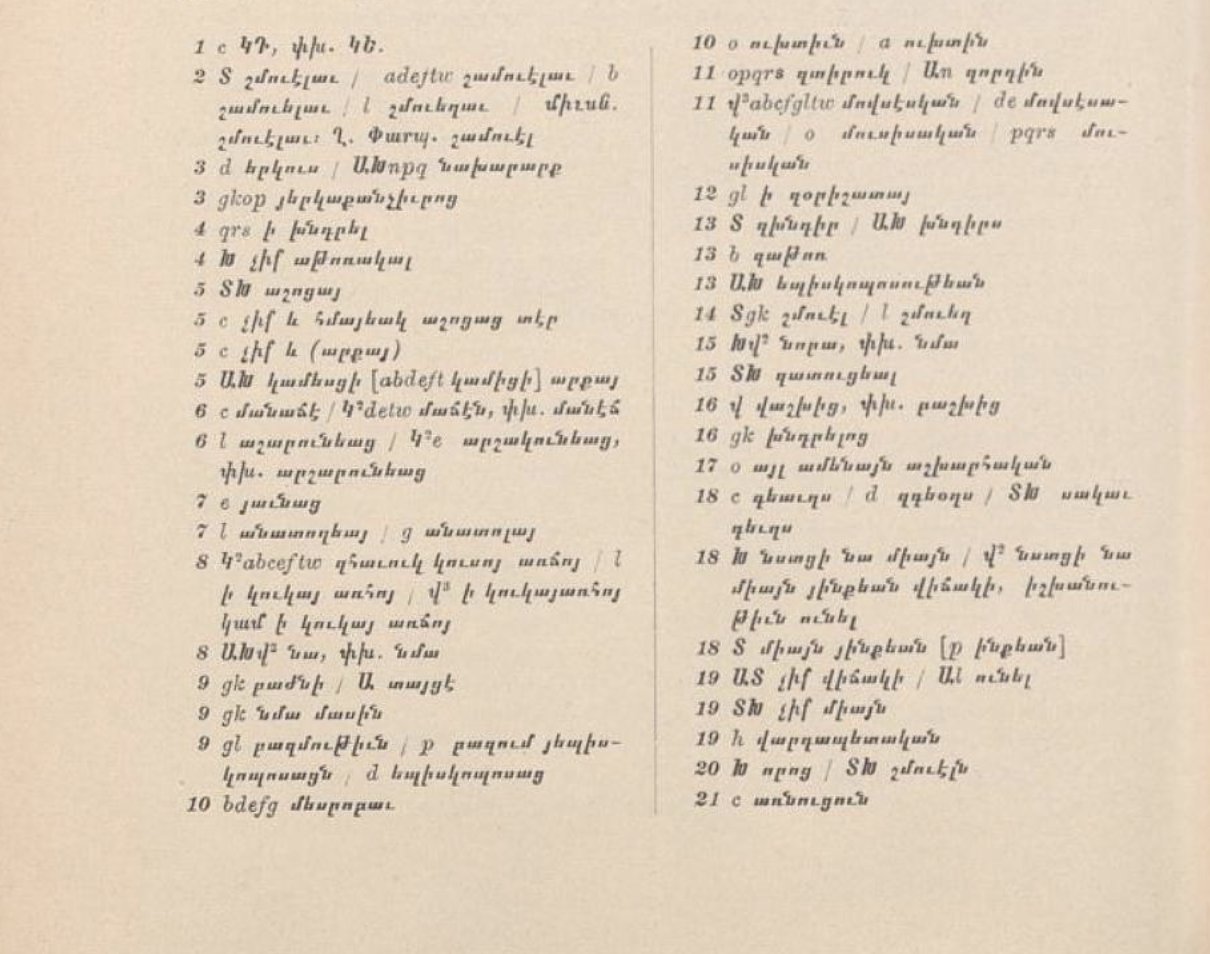 1 c ԿԴ, փխ. ԿԵ.
2 Տ շմուէլաւ / adeftw շամուէլաւ / b
շամուելաւ / l շմուեղաւ / միւսն.
շմուէլաւ։ Ղ. Փարպ. շամուէլ
3 d երկուս / ԱԽnpq նախարարք
3 gkop յերկաքանչիւրոց
4 qrs ի խնդրել
4 Խ չիք աթոռակալ
5 ՏԽ աշոցայ
5 c չիք և հմայեակ աշոցաց տէր
5 c չիք և (արքայ)
5 ԱԽ կամեսցի [abdeft կամիցի] արքայ
6 c մանաճէ / Կ²detw մաճէն, փխ. մանէճ
6 l աշարունեաց / Կ²e արշակունեաց,
փխ. արշարունեաց
7 e յաւնաց
7 l անատողեայ / g անատոլայ
8 Կ²abceftw զհաւուկ կուսոյ առճոյ / l
ի կուկայ առհոյ / վ³ ի կուկայառհոյ
կամ ի կուկայ առճոյ
8 ԱԽվ² նա, փխ. նմա
9 gk բաժնի / Ա տայցէ
9 gk նմա մասին
9 gl բազմութիւն / p բազում յեպիս-
կոպոսացն / d եպիսկոպոսաց
10 bdefg մեսրոբաւ
10 o ուխտիւն / a ուխտին
11 opqrs զտիրուկ / Աn զորդին
11 վ²abcfgltw մովսէսկան / de մովսէսա-
կան / o մուսիսական / pqrs մու-
սիսկան
12 gl ի զօրիշատայ
13 Տ զխնդիր / ԱԽ խնդիրս
13 b զաթոռ
13 ԱԽ եպիսկոպոսութեան
14 Տgk շմուէլ / l շմուեղ
15 Խվ² նորա, փխ. նմա
15 ՏԽ զատուցեալ
16 վ վաշխից, փխ. բաշխից
16 gk խնդրելոց
17 o այլ ամենայն աշխարհական
18 c գեաւղս / d զգեօղս / ՏԽ սակաւ
գեւղս
18 Խ նստցի նա միայն / վ² նստցի նա
միայն յինքեան վիճակի, իշխանու-
թիւն ունել
18 Տ միայն յինքեան [p ինքեան]
19 ԱՏ չիք վիճակի / Աl ունել
19 ՏԽ չիք միայն
19 h վարդապետական
20 Խ որոց / ՏԽ շմուէլն
21 c առնուցուն